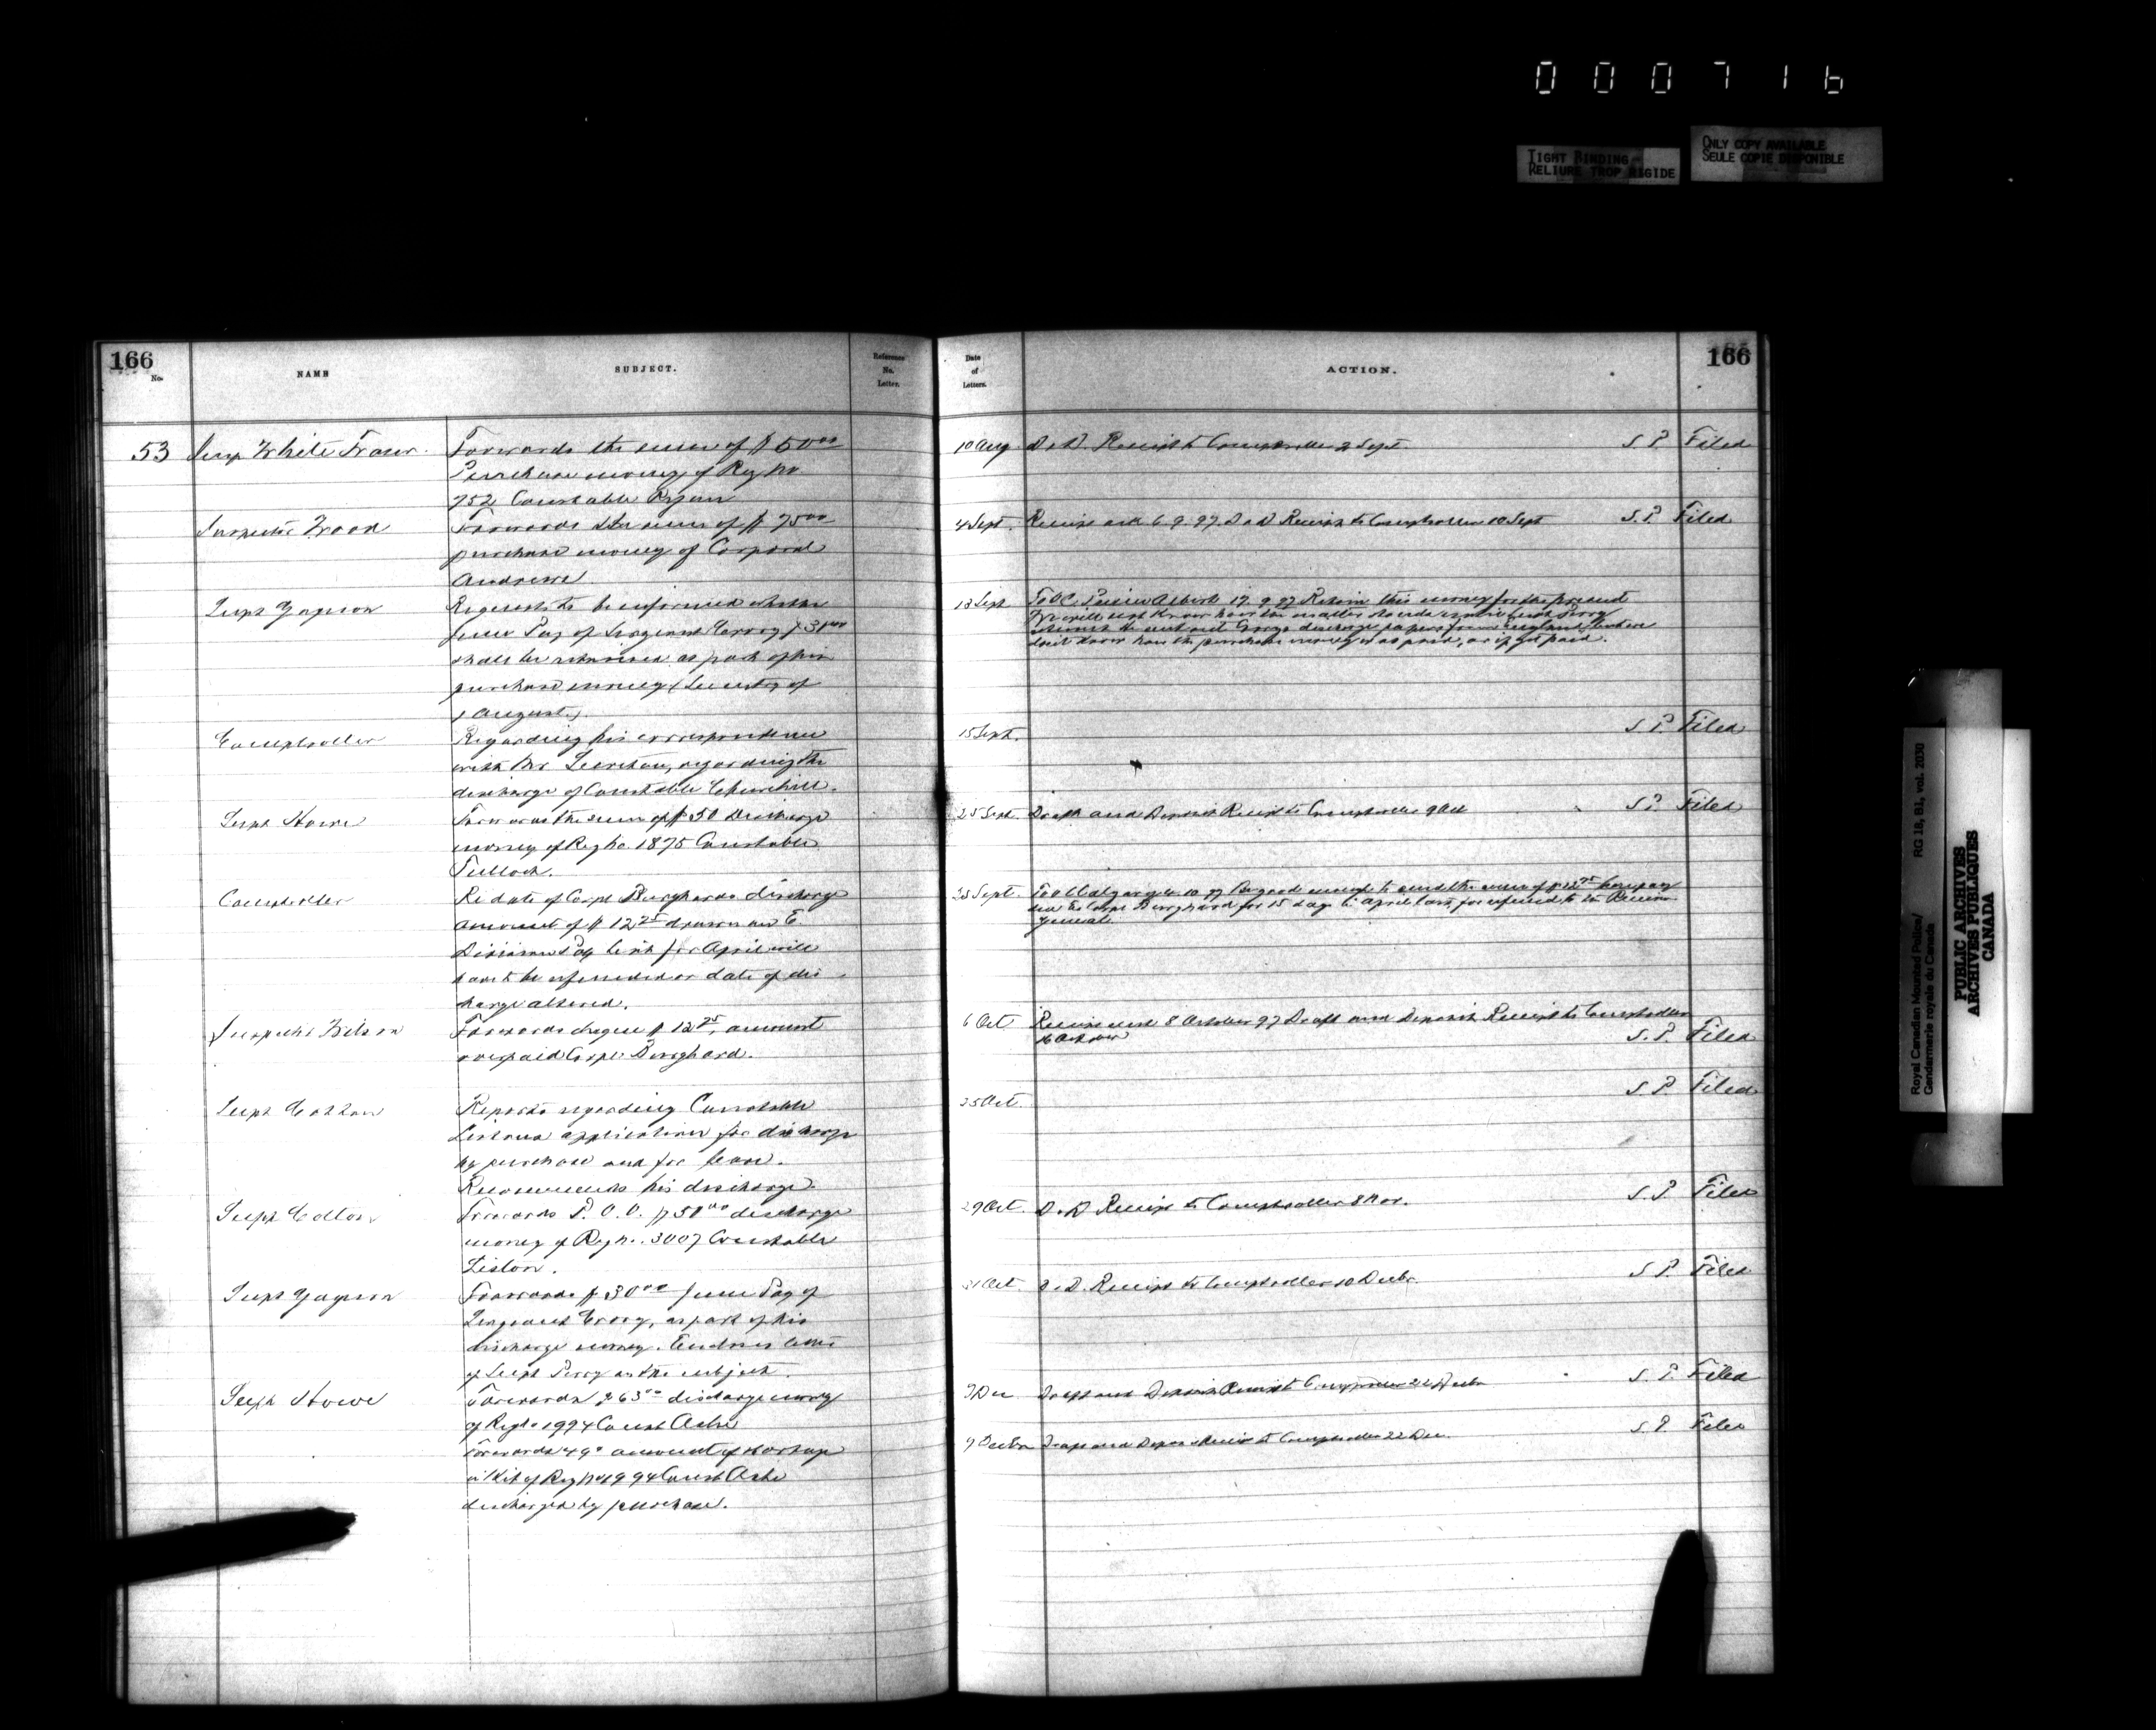 000716
TIGHT BINDING
RELIURE TROP RIGIDE
ONLY COPY AVAILABLE
SEULE COPIE DISPONIBLE
166
No.
NAME
SUBJECT.
Reference
No.
Letter.
Date
of
Letters.
ACTION.
166
53 Insp White Fraser. Forwards the sum of $50.00
Purchase money of Reg No
752 Constable Ryan
10 Aug D & D. Receipt to Comptroller 2 Sept. S.P. Filed
Inspector Wood Forwards the sum of $75.00
purchase money of Corporal
Andrews
4 Sept. Receipt ack 6.9.97. D & D Receipt to Comptroller 10 Sept S.P. Filed
Supt Gagnon Requests to be informed whether
June Pay of Sergeant
shall be retained as part of his
purchase money
August
13 Sept Retain this money for the present
don't know how the purchase money was paid, or if yet paid.
Comptroller Regarding his correspondence
with Mr regarding the
discharge of Constable Churchill.
15 Sept. S.P. Filed
Supt Howe Forwards the sum of $50 Discharge
money of Reg No. 1875 Constable
Tulloch.
25 Sept. Draft and Deposit Receipt to Comptroller 9 Oct S.P. Filed
Comptroller Re date of Corpl Burghards discharge
amount of $12.25 drawn on E
Division Pay List for April will
have to be refunded or date of dis
charge altered.
Sept. the sum of
Corpl Burghard for 15 days April last, for refund to the Receiver
General
Inspector Wilson Forwards cheque $12.25, amount
overpaid Corpl Burghard.
6 Oct Receipt ack 8 October 97 Draft and Deposit Receipt to Comptroller
October S.P. Filed
Supt Cotton Reports regarding Constable
Listons application for discharge
by purchase and for leave.
Recommends his discharge.
25 Oct. S.P. Filed
Supt Cotton Forwards P.O.O. $50.00 discharge
money of Reg No. 3007 Constable
Liston.
29 Oct. D & D Receipt to Comptroller 8 Nov. S.P. Filed
Supt Gagnon Forwards $30.00 June Pay of
Sergeant as part of his
discharge money. Encloses letter
of Supt Perry on the subject.
31 Oct. D & D. Receipt to Comptroller 10 Decbr. S.P. Filed
Supt Howe Forwards $63.00 discharge money
of Reg No 1994 Const Ashe
Dec Draft and Deposit Receipt to Comptroller 22 Decbr S.P. Filed
Forwards amount of shortage
in Kit of Reg No 1994 Const Ashe
discharged by purchase.
9 Decbr Draft and Deposit Receipt to Comptroller 22 Dec. S.P. Filed
Royal Canadian Mounted Police/
Gendarmerie royale du Canada
RG 18, B1, vol. 2030
PUBLIC ARCHIVES
ARCHIVES PUBLIQUES
CANADA